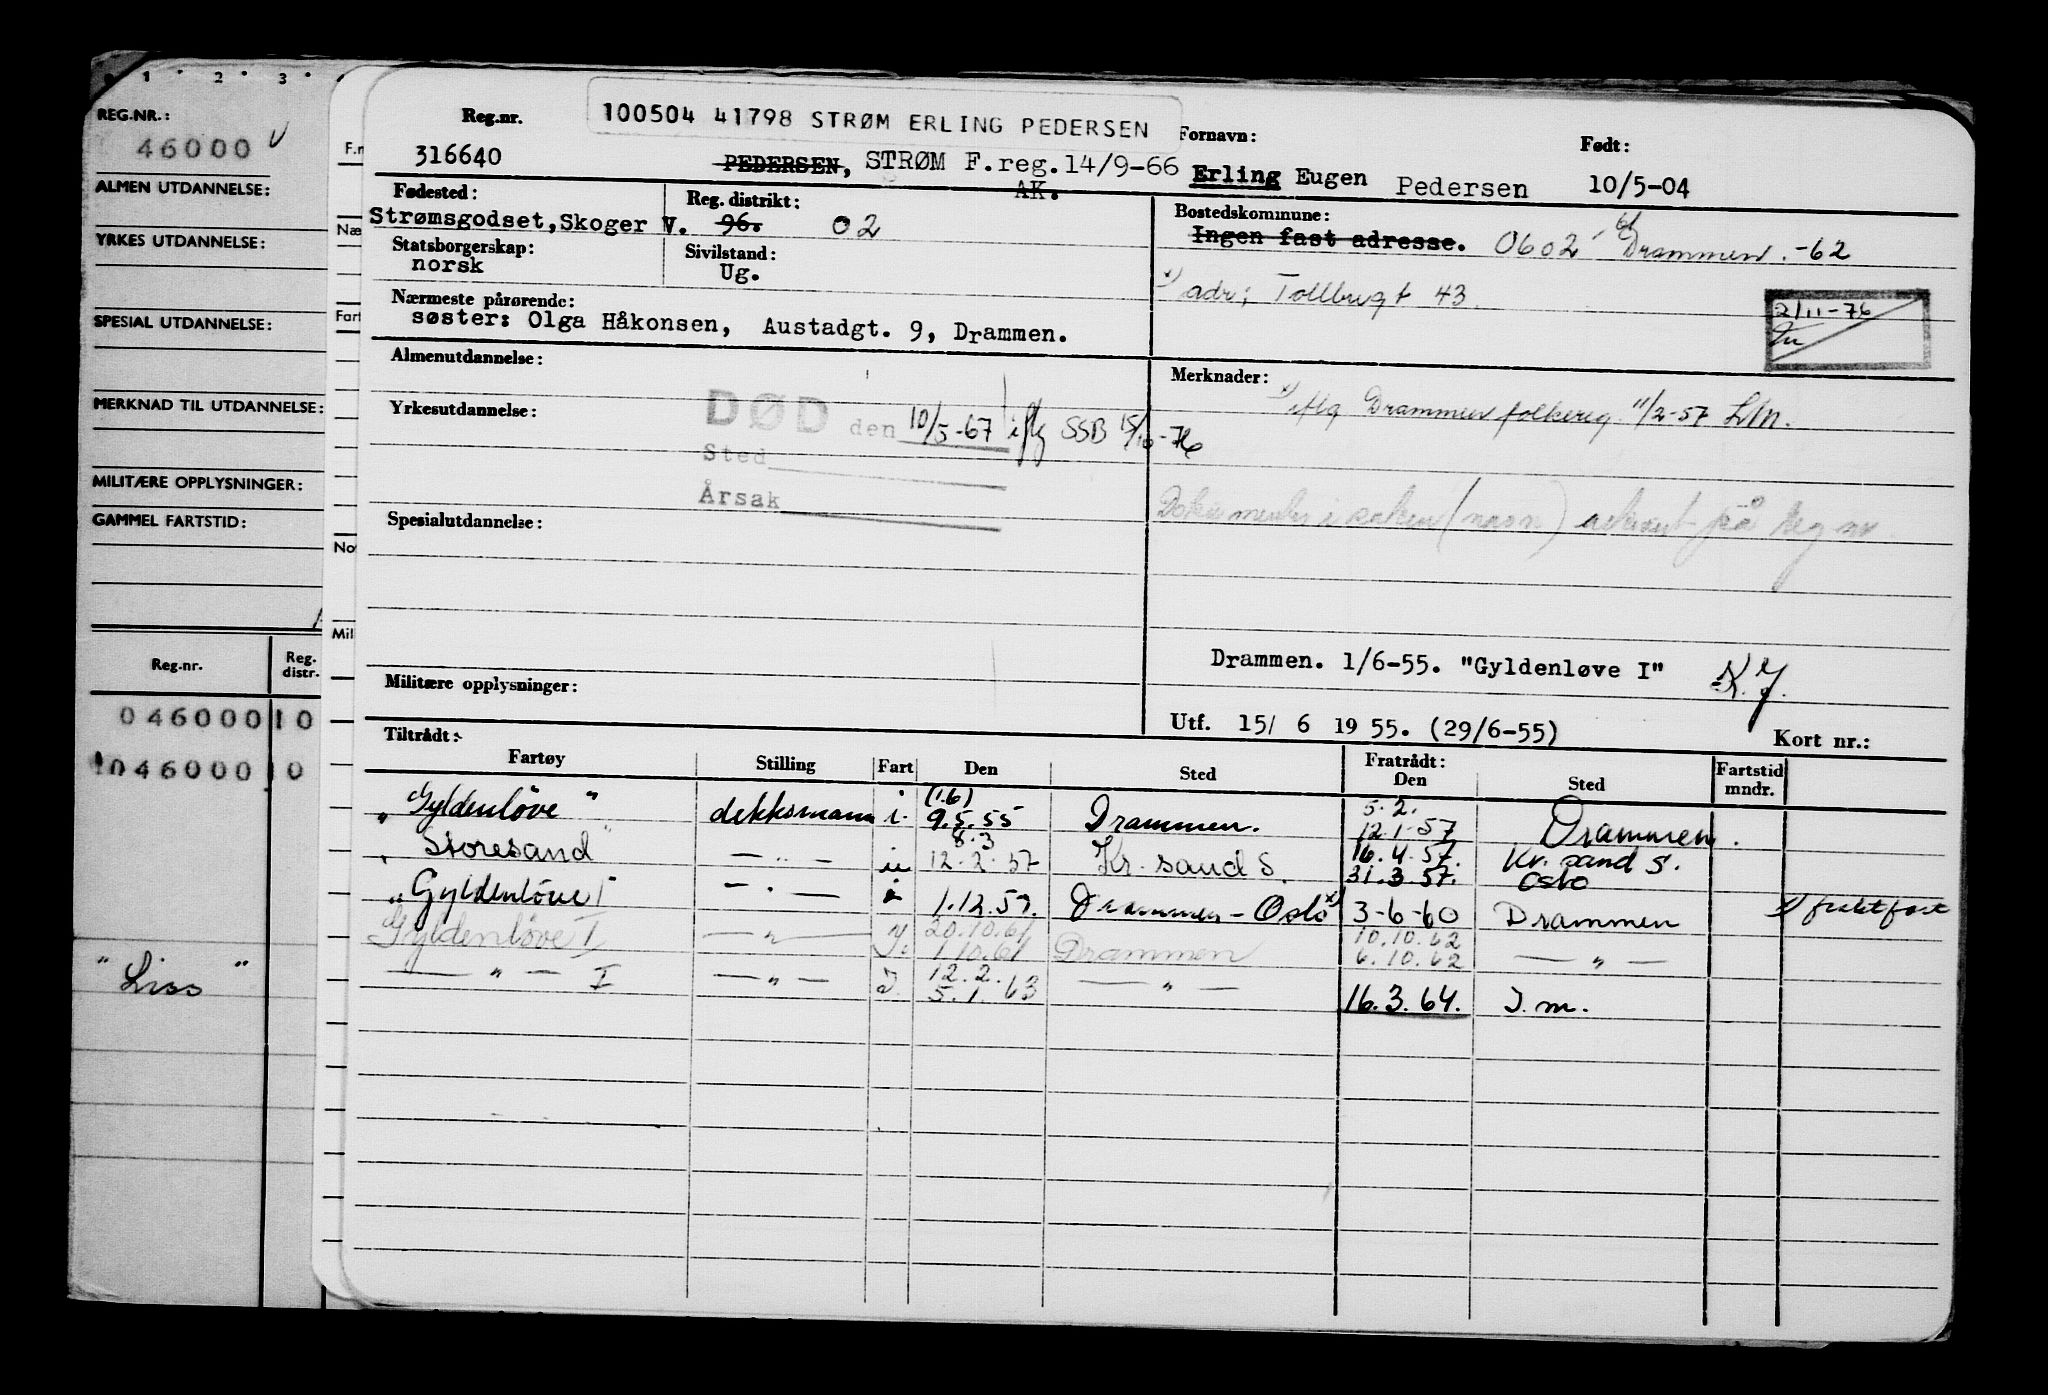 1 2 3
REG.NR.:
46000 v
ALMEN UTDANNELSE:
YRKES UTDANNELSE:
SPESIAL UTDANNELSE:
MERKNAD TIL UTDANNELSE:
MILITÆRE OPPLYSNINGER:
GAMMEL FARTSTID:
Reg.nr. Reg. distr.
046000 10
046000 10
" Liss "
F.r
Næ
Fart
No
Mil
Reg.nr. 100504 41798 STRØM ERLING PEDERSEN Fornavn: Født:
316640 PEDERSEN, STRØM F.reg.14/9-66 Erling Eugen Pedersen 10/5-04
AK.
Fødested: Reg. distrikt: Bostedskommune:
Strømsgodset, Skoger V. 96. 02 Ingen fast adresse. 0602 Drammen. -62
Statsborgerskap: Sivilstand:
norsk Ug.
x) adr; Tollbugt 43.
Nærmeste pårørende:
søster: Olga Håkonsen, Austadgt. 9, Drammen.
2/11-76
Almenutdannelse: Merknader:
x) iflg Drammen folkereg. 11/2-57 L/n.
Yrkesutdannelse:
DØD den 10/5-67 iflg SSB 15/10-76
Sted
Årsak
Dokumenter i saken (navn) arkivert på reg nr
Spesialutdannelse:
Drammen. 1/6-55. "Gyldenløve I" K.J.
Militære opplysninger:
Utf. 15/ 6 19 55. (29/6-55) Kort nr.:
Tiltrådt: Fratrådt: Fartstid
Fartøy Stilling Fart Den Sted Den Sted mndr.
"Gyldenløve" dekksmann i. (1.6) 9.5.55 Drammen. 5.2. 12.1.57 Drammen.
"Storesand" — " — u 8.3 12.2.57 Kr. sand S. 16.4.57. 31.3.57. Kr. sand S. Oslo
"Gyldenløve I" — " — i 1.12.57. Drammen - Oslo x) 3-6-60 Drammen x) fraktfart
Gyldenløve I — " — I. 20.10.61 1.10.61 Drammen 10.10.62 6.10.62 — " —
— " — I — " — I. 12.2. 5.1.63 — " — 16.3.64. I.m.